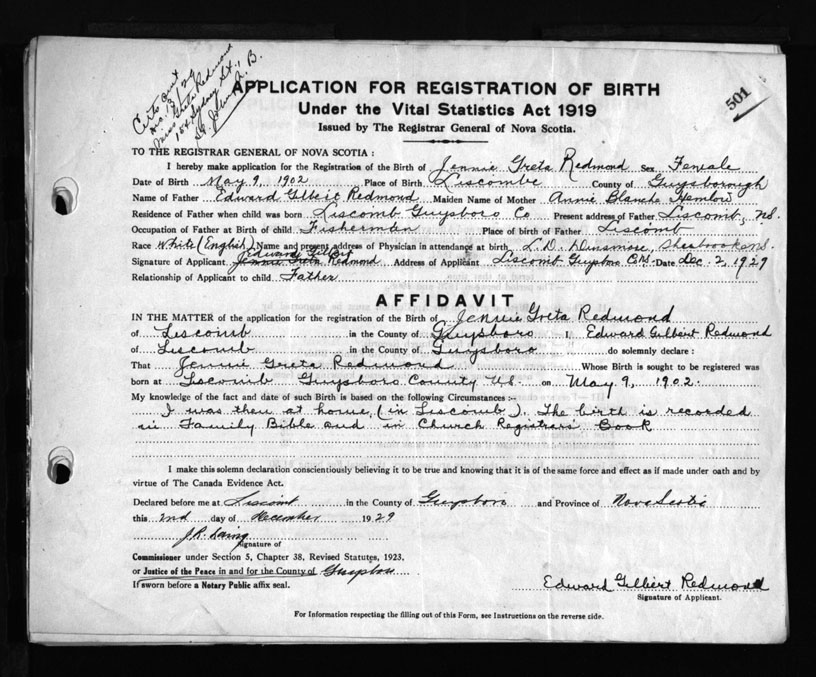 Certs out
Dec. 13/29
Miss Greta Redmond
184 Sydney St.,
St. John, N. B.
501
APPLICATION FOR REGISTRATION OF BIRTH
Under the Vital Statistics Act 1919
Issued by The Registrar General of Nova Scotia.
TO THE REGISTRAR GENERAL OF NOVA SCOTIA :
I hereby make application for the Registration of the Birth of Jennie Greta Redmond Sex Female
Date of Birth May 9, 1902 Place of Birth Liscombe County of Guysborough
Name of Father Edward Gilbert Redmond Maiden Name of Mother Annie Blanche Hemlow
Residence of Father when child was born Liscomb Guysboro Co Present address of Father Liscomb, NS.
Occupation of Father at Birth of child Fisherman Place of birth of Father Liscomb
Race White (English) Name and present address of Physician in attendance at birth L. D. Densmore, Sherbrooke NS.
Edward Gilbert
Signature of Applicant Jennie Greta Redmond Address of Applicant Liscomb Guysboro Co. NS. Date Dec. 2, 1929
Relationship of Applicant to child Father
AFFIDAVIT
IN THE MATTER of the application for the registration of the Birth of Jennie Greta Redmond
of Liscomb in the County of Guysboro I, Edward Gilbert Redmond
of Liscomb in the County of Guysboro do solemnly declare :
That Jennie Greta Redmond Whose Birth is sought to be registered was
born at Liscomb Guysboro County N.S. on May 9, 1902.
My knowledge of the fact and date of such Birth is based on the following Circumstances :-
I was then at home, (in Liscomb). The birth is recorded
in Family Bible and in Church Registrars Book
I make this solemn declaration conscientiously believing it to be true and knowing that it is of the same force and effect as if made under oath and by
virtue of The Canada Evidence Act.
Declared before me at Liscomb in the County of Guysboro and Province of Nova Scotia
this 2nd day of December 1929
J. R. Laing
Signature of
Commissioner under Section 5, Chapter 38, Revised Statutes, 1923,
or Justice of the Peace in and for the County of Guysboro
If sworn before a Notary Public affix seal.
Edward Gilbert Redmond
Signature of Applicant.
For Information respecting the filling out of this Form, see Instructions on the reverse side.